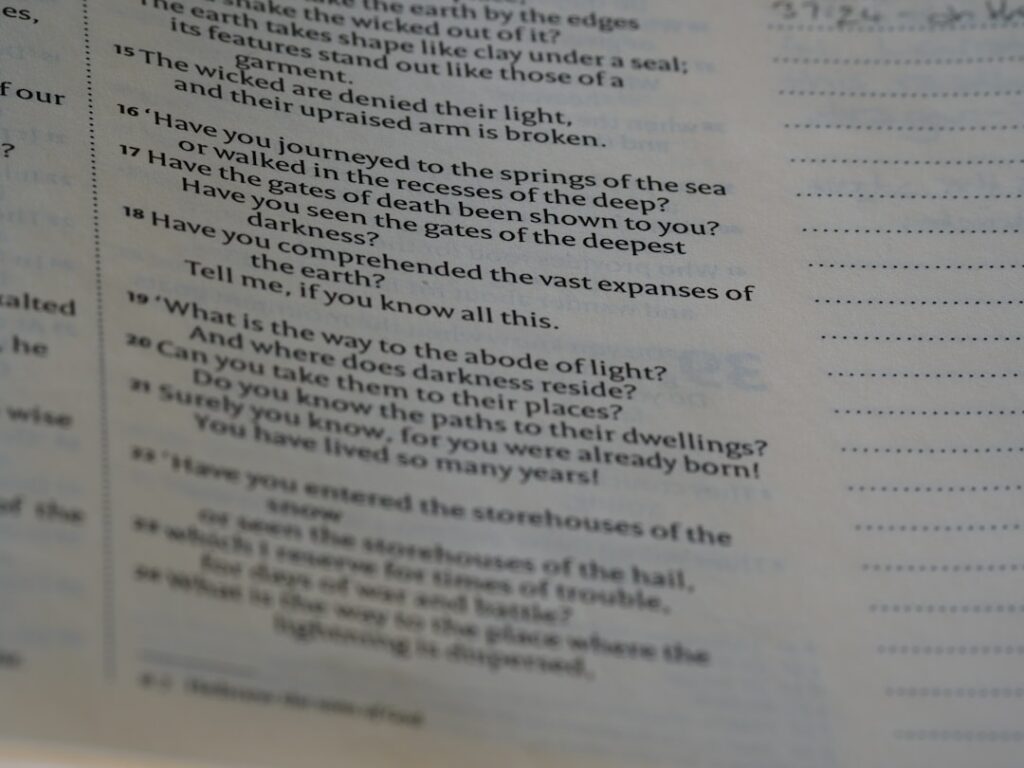 es,
f our
?
alted
, he
wise
of the
the earth by the edges
shake the wicked out of it?
The earth takes shape like clay under a seal;
its features stand out like those of a
garment.
15 The wicked are denied their light,
and their upraised arm is broken.
16 ‘Have you journeyed to the springs of the sea
or walked in the recesses of the deep?
17 Have the gates of death been shown to you?
Have you seen the gates of the deepest
darkness?
18 Have you comprehended the vast expanses of
the earth?
Tell me, if you know all this.
19 ‘What is the way to the abode of light?
And where does darkness reside?
20 Can you take them to their places?
Do you know the paths to their dwellings?
21 Surely you know, for you were already born!
You have lived so many years!
22 ‘Have you entered the storehouses of the
snow
or seen the storehouses of the hail,
23 which I reserve for times of trouble,
for days of war and battle?
24 What is the way to the place where the
lightning is dispersed,
37:24